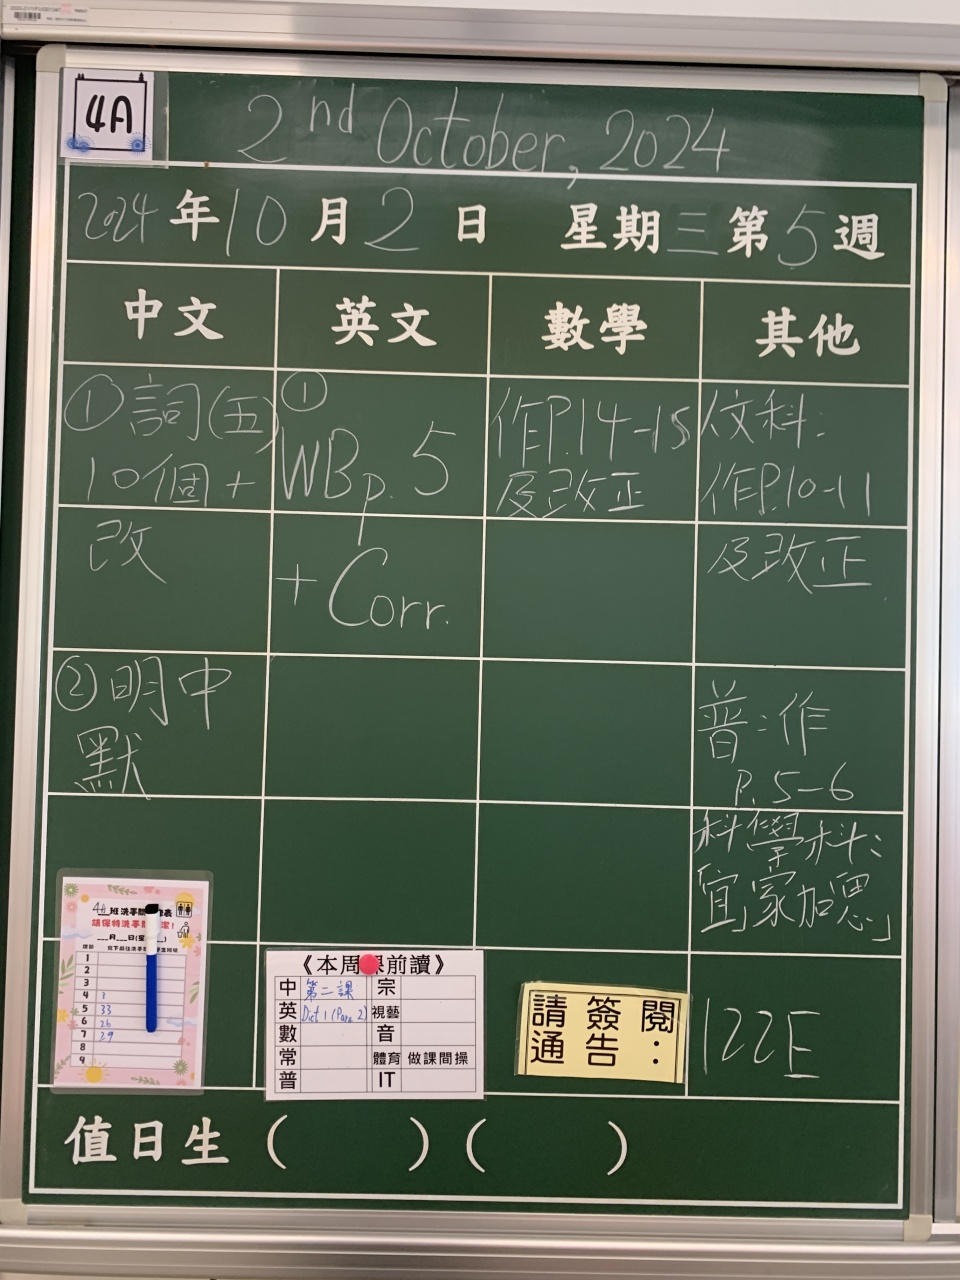 4A
2nd October, 2024
2024年10月2日 星期三第5週
中文 英文 數學 其他
①詞(五)
10個+
改
②明中
默
①
WB p. 5
+ Corr.
作P.14-15
及改正
作P.10-11
及改正
普:作
P.5-6
科學科:
「宜家加恩」
122E
班洗手間
請保持洗手間
月 日(星 )
1
2
3
4
5 33
6 26
7 29
8
9
《本周課前讀》
中 第二課 宗
英 Dict 1 (Para 2) 視藝
數 音
常 體育 做課間操
普 IT
請簽閱
通告:
值日生 ( ) ( )